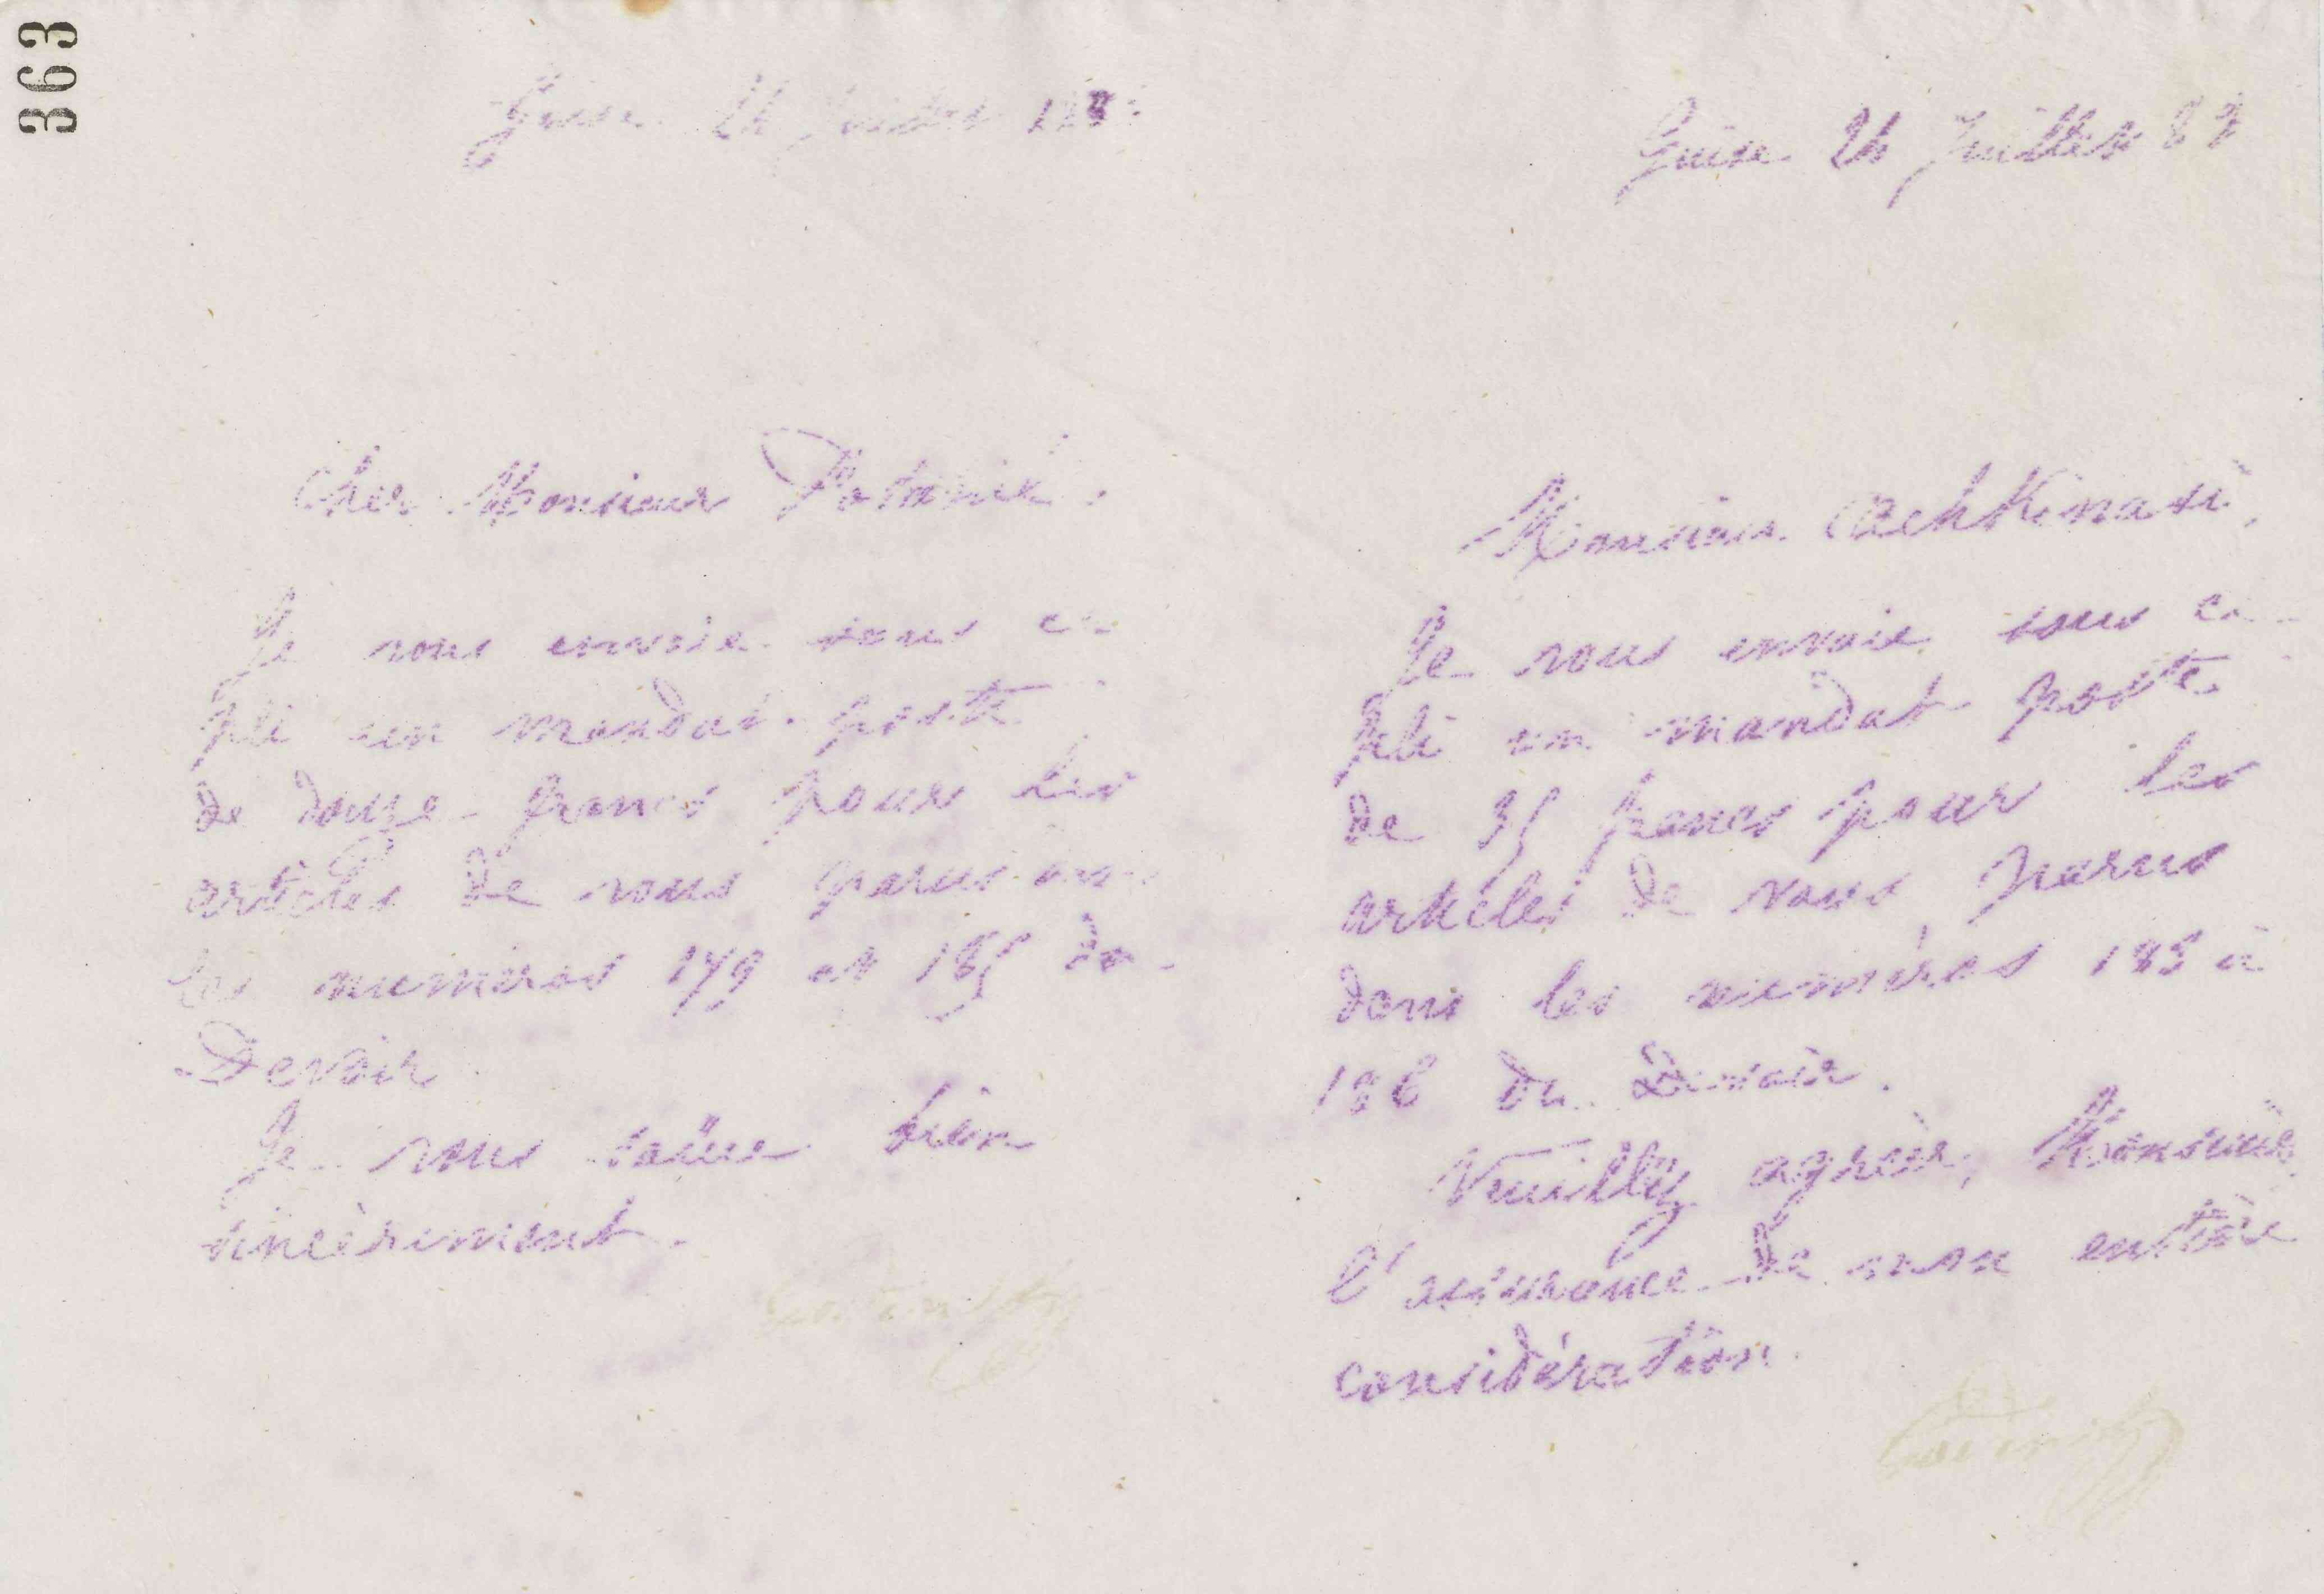 363
Guise
Cher Monsieur
Je vous envoie sous ce
pli un mandat-poste
de douze francs pour les
articles de vous parus
les numéros 179 et 185 du
Devoir
Je vous salue bien
sincèrement.
Guise Juillet 82
Monsieur Achkinasi,
Je vous envoie sous ce
pli un mandat poste
de 35 francs pour les
articles de vous parus
dans les numéros 183 à
186 du Devoir.
Veuillez agréer, Monsieur
l'assurance de mon entière
considération.